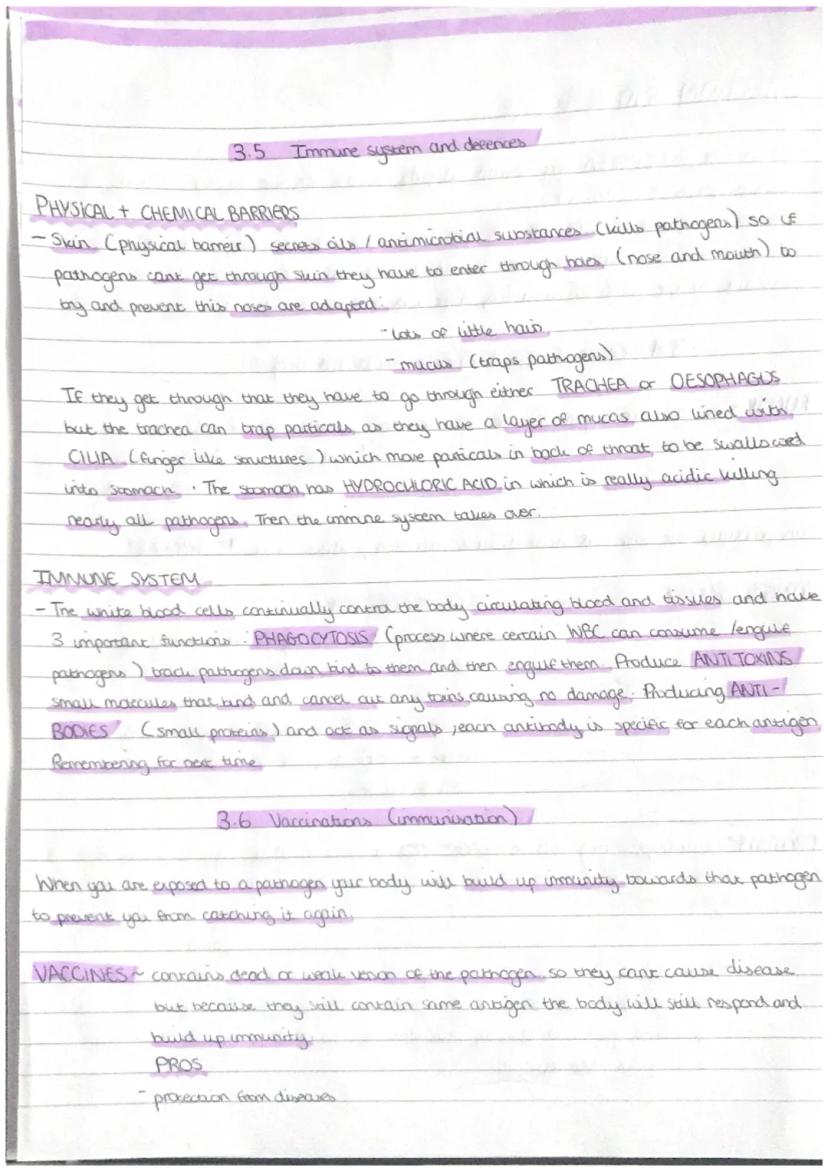 3.5 Immune system and defences
PHYSICAL + CHEMICAL BARRIERS
- Skin (physical barrier) secrets oils / antimicrobial substances (kills pathogens) so if
pathogens cant get through skin they have to enter through holes (nose and mouth) to
try and prevent this noses are adapted:
- lots of little hairs
- mucus (traps pathogens)
If they get through that they have to go through either TRACHEA or OESOPHAGUS
but the trachea can trap particals as they have a layer of mucas also lined with
CILIA (finger like structures) which move particals in back of throat to be swallowed
into stomach. The stomach has HYDROCULORIC ACID in which is really acidic killing
nearly all pathogens. Then the immune system takes over.
IMMUNE SYSTEM
- The white blood cells continually control the body circulating blood and tissues and have
3 important functions. PHAGOCYTOSIS (process where certain WBC can consume / engulf
pathogens) track pathogens down bind to them and then engulf them. Produce ANTITOXINS
small molecules that bind and cancel out any toxins causing no damage. Producing ANTI-
BODIES (small proteins) and act as signals, each antibody is specific for each antigen
Remembering for next time
3.6 Vaccinations (immunisation)
When you are exposed to a pathogen your body will build up immunity towards that pathogen
to prevent you from catching it again.
VACCINES ~ contains dead or weak version of the pathogen so they cant cause disease
but because they still contain same antigen the body will still respond and
build up immunity
PROS
- protection from diseases